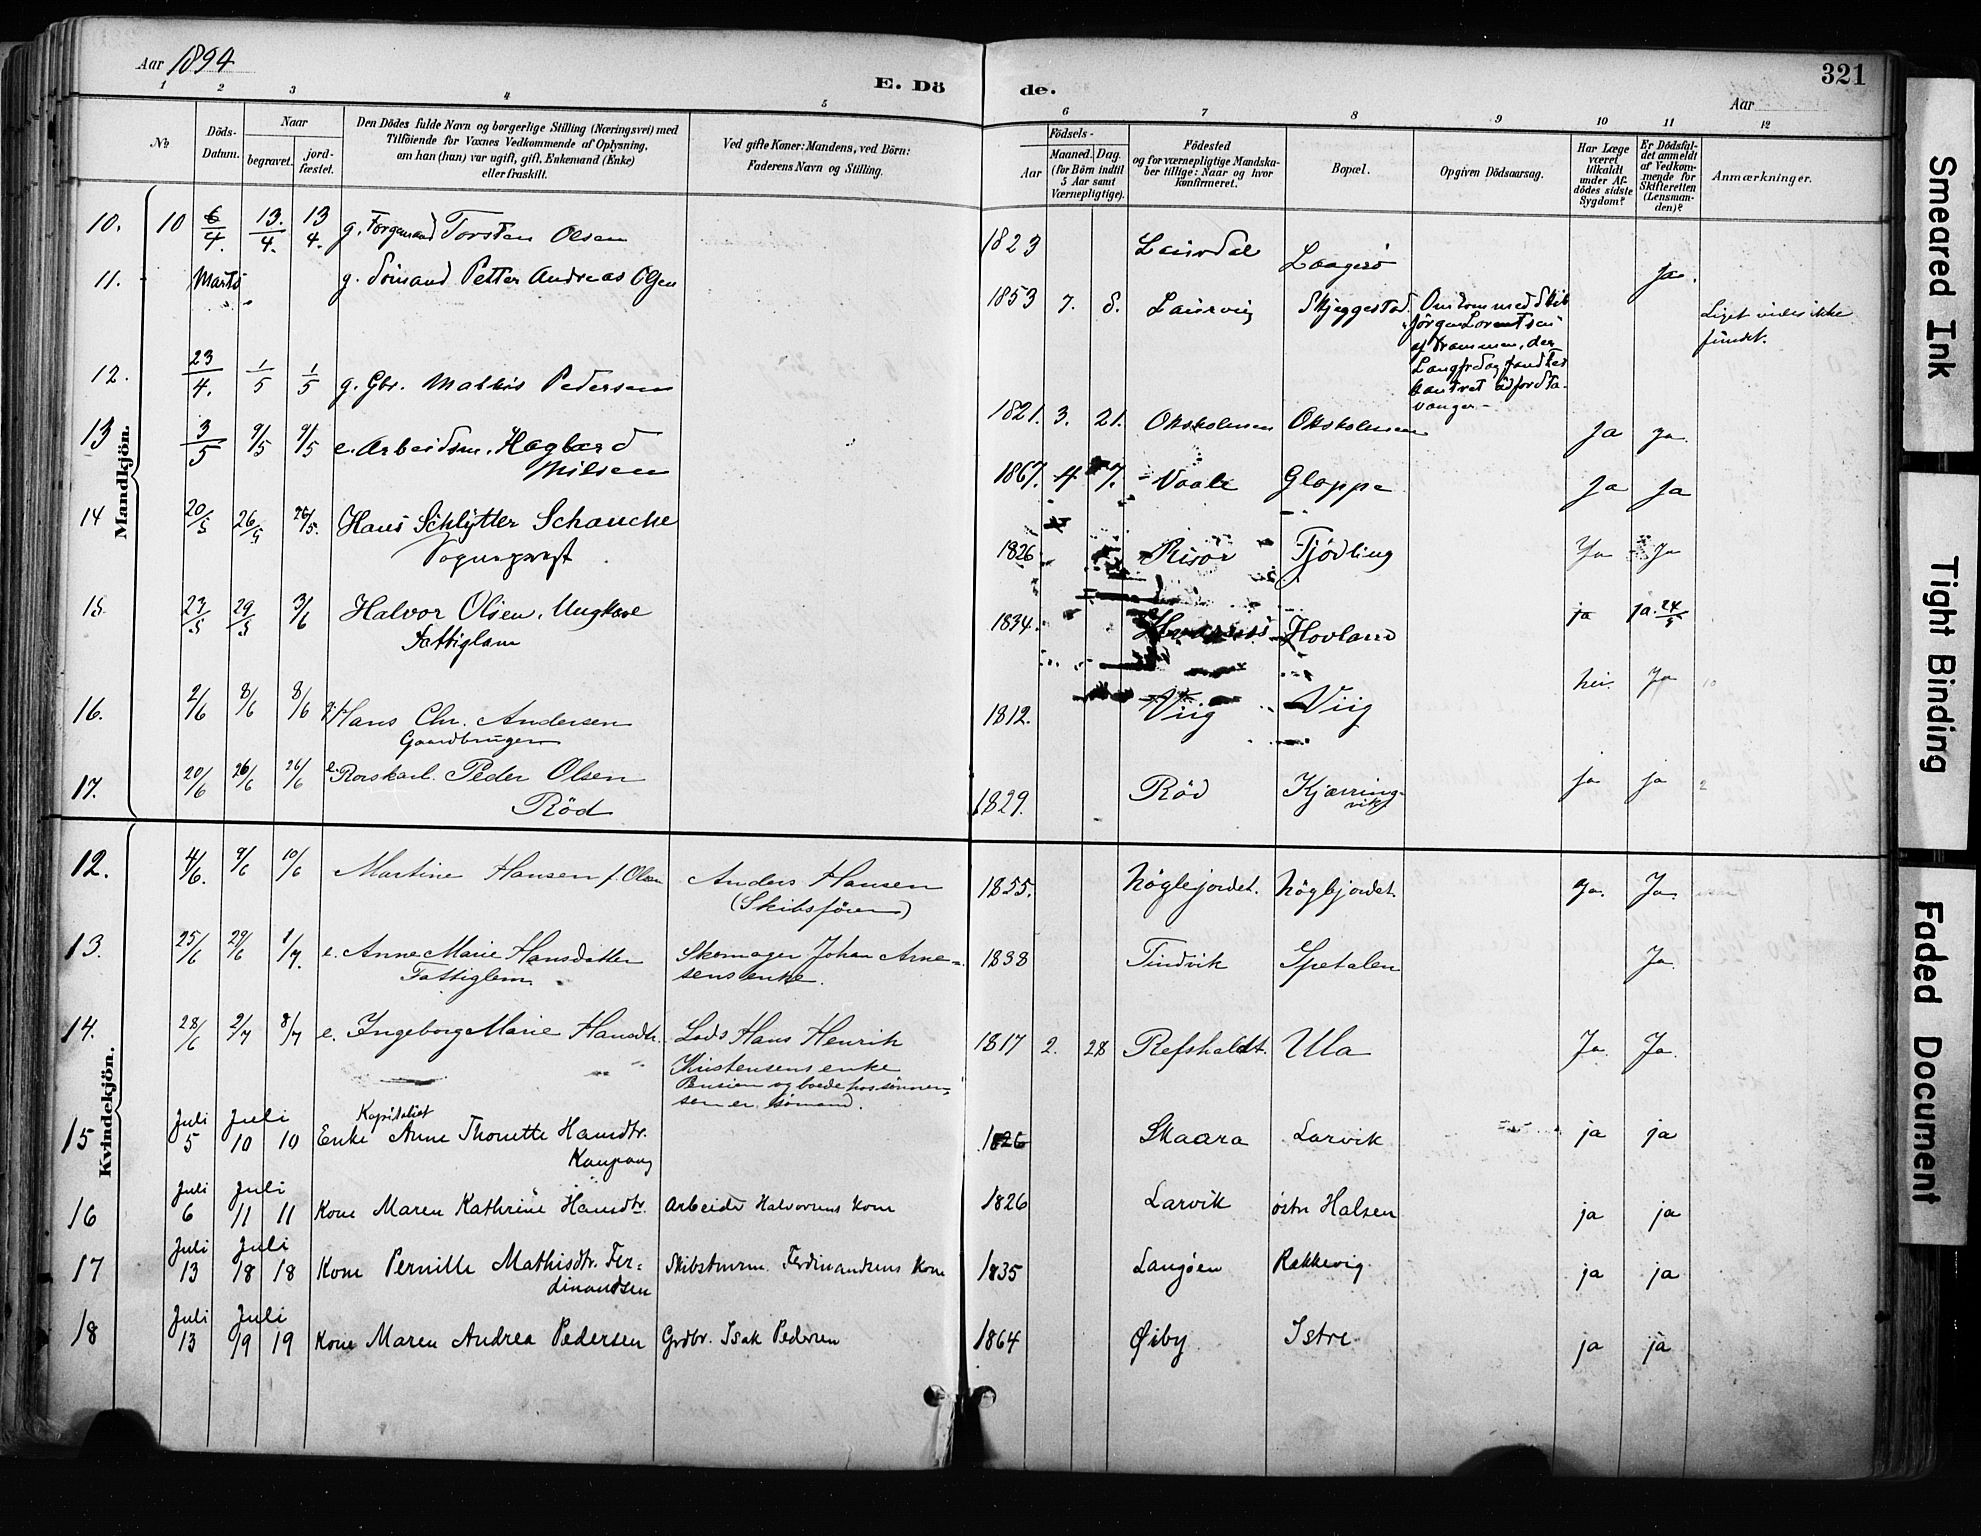 Aar 1894
E. Dö
de.
Aar
321
1 2 3 4 5 6 7 8 9 10 11 12
№
Döds-
Datum.
Naar
begravet.
jord-
fæstet.
Den Dödes fulde Navn og borgerlige Stilling (Næringsvei) med
Tilföiende for Voxnes Vedkommende af Oplysning,
om han (hun) var ugift, gift, Enkemand (Enke)
eller fraskilt.
Ved gifte Koner: Mandens, ved Börn:
Faderens Navn og Stilling.
Födsels-
Aar
Maaned. Dag.
(for Börn indtil
5 Aar samt
Værnepligtige).
Födested
og for værnepligtige Mandska-
ber tillige: Naar og hvor
konfirmeret.
Bopæl.
Opgiven Dödsaarsag.
Har Læge
været
tilkaldt
under Af-
dödes sidste
Sygdom?
Er Dödsfal-
det anmeldt
af Vedkom-
mende for
Skifteretten
(Lensman-
den)?
Anmærkninger.
Mandkjön.
10. 10 6/4. 13./4. 13/4. g. Torsten Olsen 1823 Laurdal Laagerö ja.
11. Marts g. Sömand Petter Andreas Olsen 1853 7. 8. Laurvig Skjeggestad. Omkom med Skib
Jörgen Lorentsen
af Drammen, der
Langfredag fandtes
kantret udfor Sta-
vanger.
Liget vides ikke
fundet.
12. 23/4. 1/5 1/5 g. Gbr. Mathis Pedersen 1821. 3. 21. Oksholmen Oksholmen ja ja
13 3/5 9/5 9/5 e. Arbeidsm. Hagbard
Nilsen 1867. 4 7. Vaale Gloppe Ja Ja
14 20/5 26/5 26/5. Hans Schlytter Schanche
1826 Risör Tjödling Ja Ja
15 23/5 29/5 3/6 Halvor Olsen, Ungkarl
Fattiglem 1834. Hovland ja ja. 24/5
16. 2/6 8/6 8/6 g. Hans Chr. Andersen
Gaardbruger 1812. Viig Viig nei. Ja
17. 20/6 26/6 26/6 e. Rorskarl. Peder Olsen
Röd 1829. Röd Kjærring-
vik ja ja
Kvindekjön.
12. 4/6. 9/6 10/6 Martine Hansen f. Olsen Anders Hansen
(Skibsförer) 1855. Nöglejordet. Nöglejordet. Ja. Ja.
13. 25/6 29/6 1/7. e. Anne Marie Hansdatter
Fattiglem Skomager Johan Arne-
sens enke. 1838 Tindvik Spetalen Ja.
14. 28/6 2/7 8/7 e. Ingeborg Marie Hansdtr. Lods Hans Henrik
Kristensens enke
Pension og boede hos sönnen,
som er sömand. 1817 2. 28 Refsholdt. Ula Ja. Ja.
15 Juli 5 Juli 10 10 Enke Kapitalist Anne Thonette Hansdtr.
Kaupang 1826 Skaara Larvik ja ja
16 Juli 6 Juli 11 11 Kone Maren Kathrine Hansdtr. Arbeider Halvorsens Kone 1826 Larvik østr Halsen ja ja
17 Juli 13 Juli 18 18 Kone Pernille Mathisdtr. Fer-
dinandsen Skibstmrm. Ferdinandsens Kone 1835 Langöen Rekkevig ja ja
18 Juli 13 Juli 19 19 Kone Maren Andrea Pedersen Grdbr. Isak Pedersen 1864 Øiby Istre ja ja
Smeared Ink
Tight Binding
Faded Document